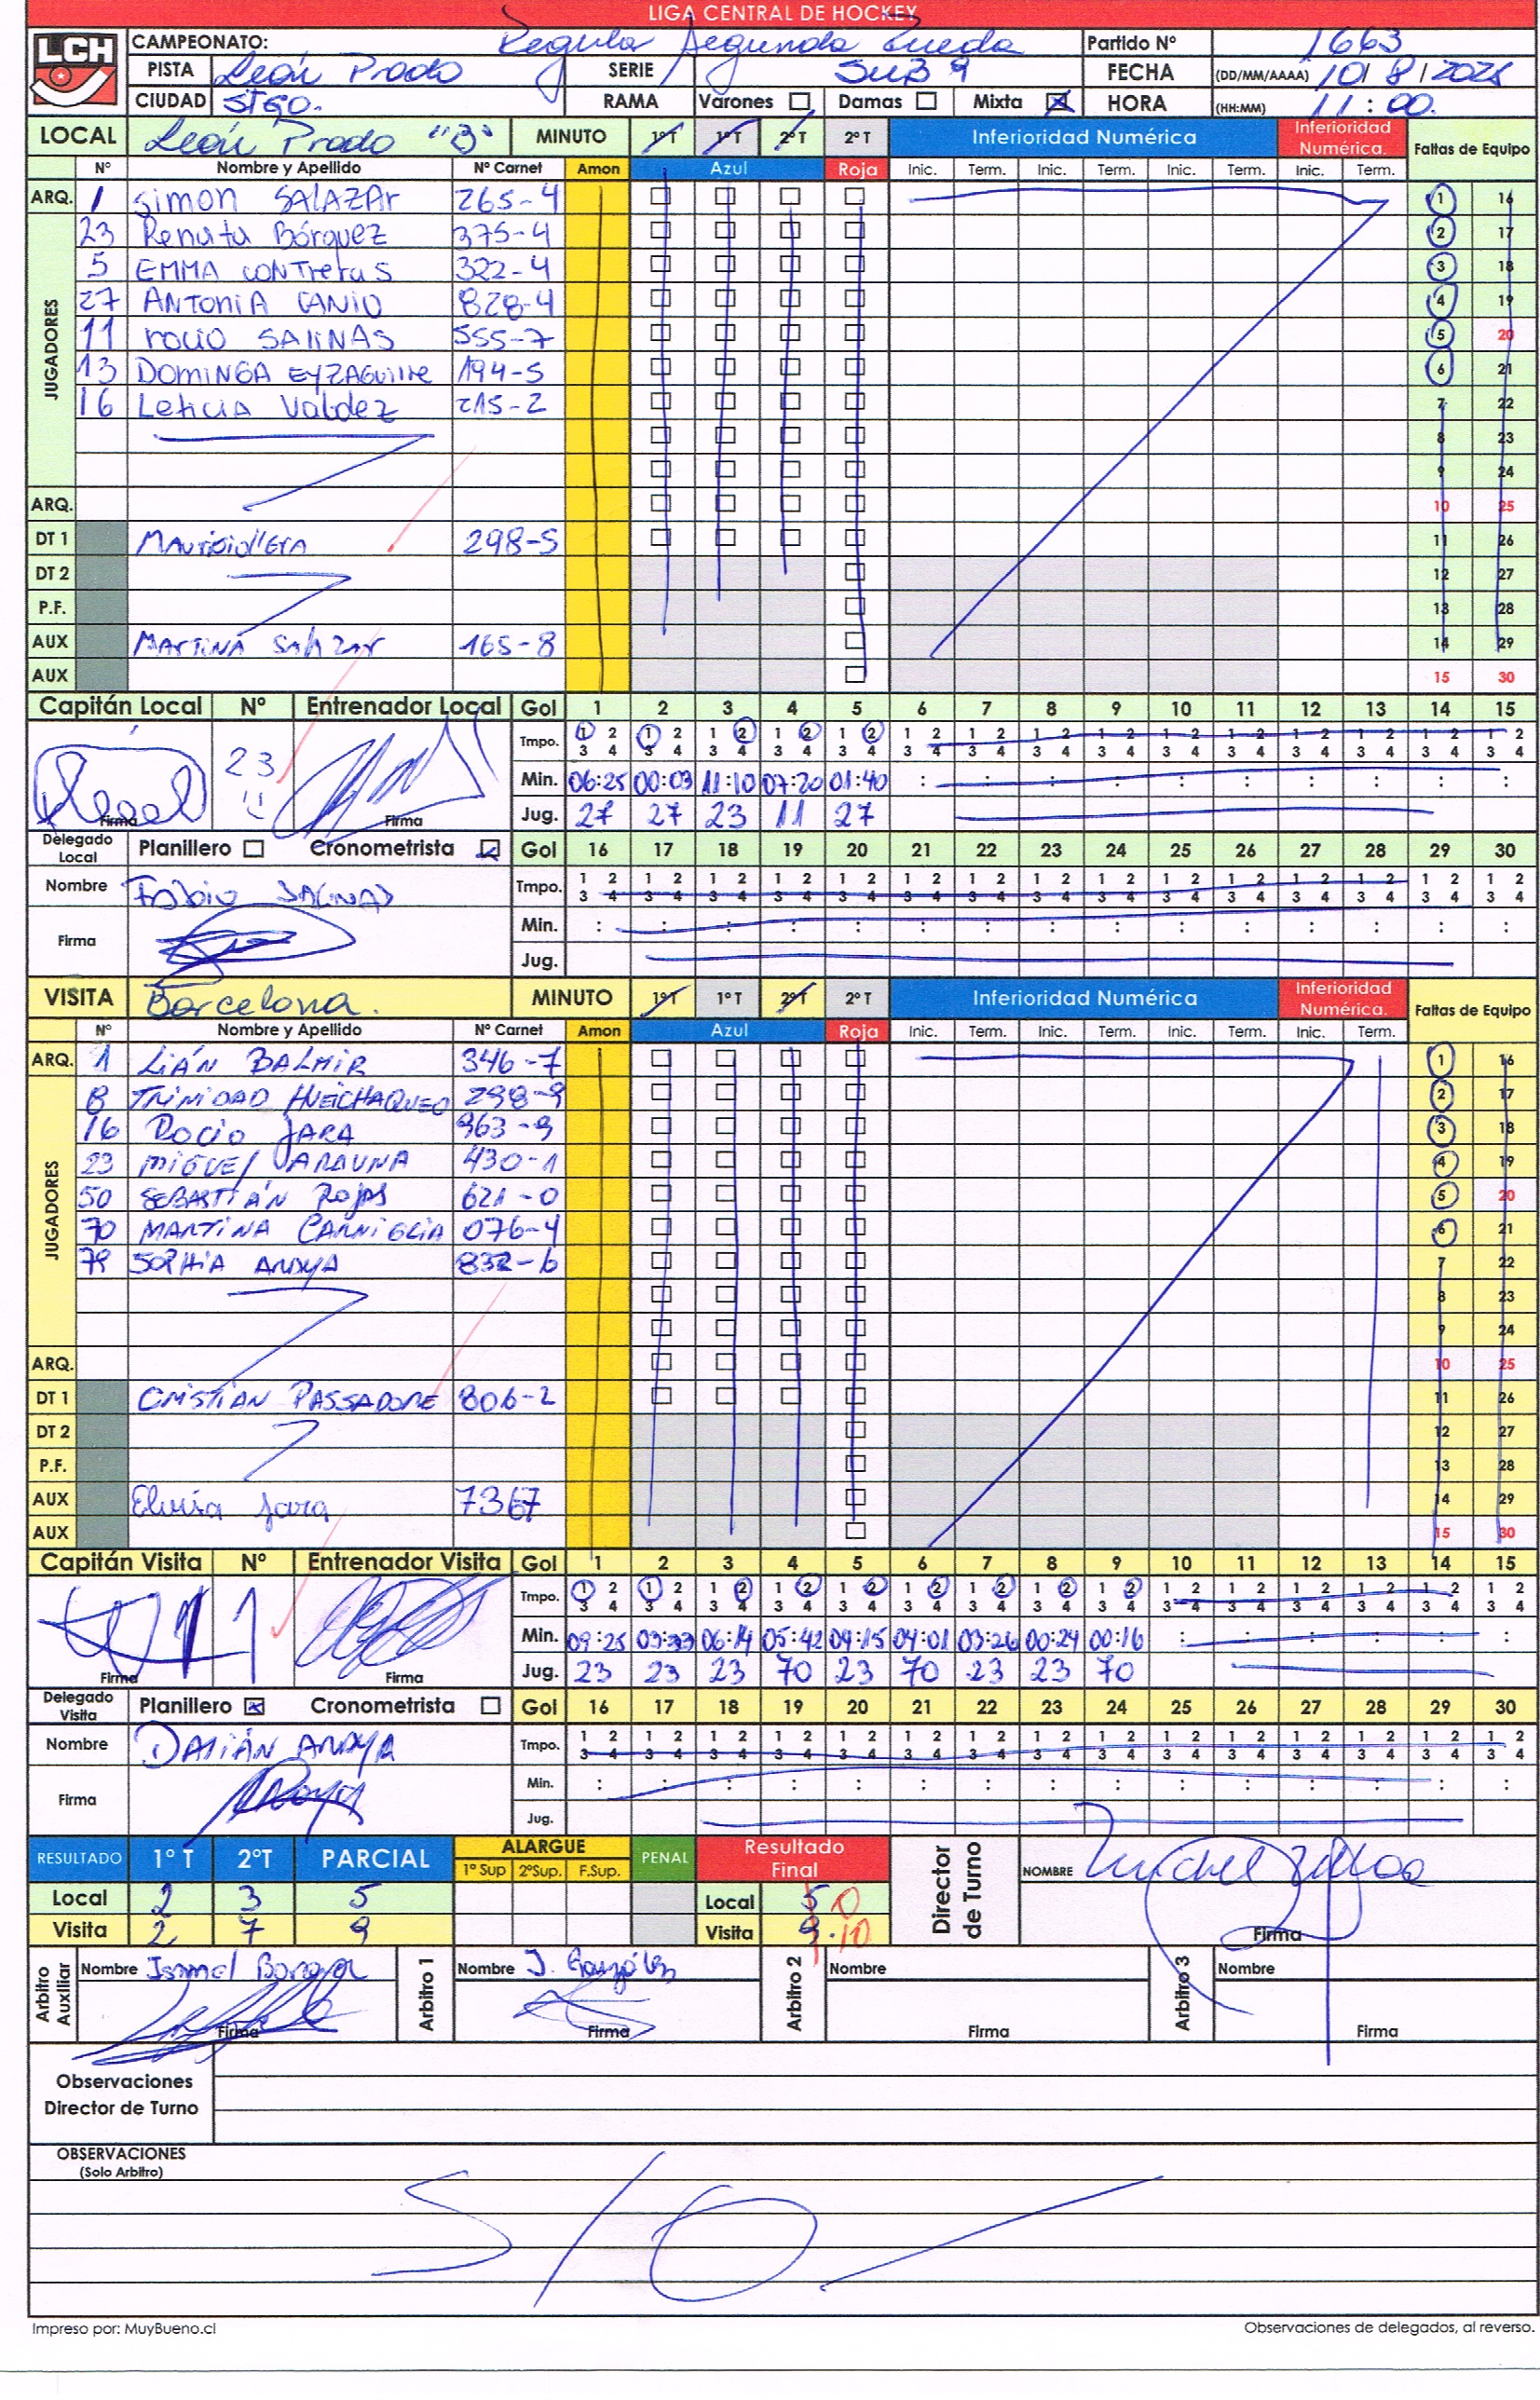 LIGA CENTRAL DE HOCKEY
LCH
CAMPEONATO: Regular Segunda Rueda Partido Nº 1663
PISTA León Prado SERIE SUB 9 FECHA (DD/MM/AAAA) 10/8/2025
CIUDAD STGO. RAMA Varones Damas Mixta HORA (HH:MM) 11:00.
LOCAL León Prado "B" MINUTO 1ºT 1ºT 2ºT 2ºT Inferioridad Numérica Inferioridad Numérica. Faltas de Equipo
Nº Nombre y Apellido Nº Carnet Amon Azul Roja Inic. Term. Inic. Term. Inic. Term. Inic. Term.
JUGADORES
ARQ. 1 Simon SALAZAr 265-4 1 16
23 Renata Bórquez 375-4 2 17
5 EMMA CONTreraS 322-4 3 18
27 ANTONIA CANIO 828-4 4 19
11 rocio SALINAS 555-7 5 20
13 DOMINGA EYZAGUIrre 194-5 6 21
16 Leticia Valdez 215-2 7 22
8 23
9 24
ARQ. 10 25
DT 1 298-5 11 26
DT 2 12 27
P.F. 13 28
AUX MArTINA SalaZar 165-8 14 29
AUX 15 30
Capitán Local Nº Entrenador Local Gol 1 2 3 4 5 6 7 8 9 10 11 12 13 14 15
Tmpo. 1 2 1 2 1 2 1 2 1 2 1 2 1 2 1 2 1 2 1 2 1 2 1 2 1 2 1 2 1 2
3 4 3 4 3 4 3 4 3 4 3 4 3 4 3 4 3 4 3 4 3 4 3 4 3 4 3 4 3 4
23 Min. 06:25 00:03 11:10 07:20 01:40 : : : : : : : : : :
Firma Firma Jug. 27 27 23 11 27
Delegado Local Planillero Cronometrista Gol 16 17 18 19 20 21 22 23 24 25 26 27 28 29 30
Nombre Fabio SALINAS Tmpo. 1 2 1 2 1 2 1 2 1 2 1 2 1 2 1 2 1 2 1 2 1 2 1 2 1 2 1 2 1 2
3 4 3 4 3 4 3 4 3 4 3 4 3 4 3 4 3 4 3 4 3 4 3 4 3 4 3 4 3 4
Firma Min. : : : : : : : : : : : : : : :
Jug.
VISITA Barcelona. MINUTO 1ºT 1ºT 2ºT 2ºT Inferioridad Numérica Inferioridad Numérica. Faltas de Equipo
Nº Nombre y Apellido Nº Carnet Amon Azul Roja Inic. Term. Inic. Term. Inic. Term. Inic. Term.
JUGADORES
ARQ. 1 LIÁN BALMIR 346-7 1 16
8 TRINIDAD HUEICHAQUEO 298-9 2 17
16 ROCIO JARA 963-9 3 18
23 MIGUEL ARAUNA 430-1 4 19
50 SEBASTIÁN ROJAS 621-0 5 20
70 MARTINA CARNIGLIA 076-4 6 21
79 SOPHIA ARAYA 832-6 7 22
8 23
9 24
ARQ. 10 25
DT 1 CRISTIAN PASSADORE 806-2 11 26
DT 2 12 27
P.F. 13 28
AUX Eluisa Jara 7367 14 29
AUX 15 30
Capitán Visita Nº Entrenador Visita Gol 1 2 3 4 5 6 7 8 9 10 11 12 13 14 15
Tmpo. 1 2 1 2 1 2 1 2 1 2 1 2 1 2 1 2 1 2 1 2 1 2 1 2 1 2 1 2 1 2
3 4 3 4 3 4 3 4 3 4 3 4 3 4 3 4 3 4 3 4 3 4 3 4 3 4 3 4 3 4
1 Min. 09:25 03:33 06:14 05:42 04:15 04:01 03:26 00:24 00:16 : : : : : :
Firma Firma Jug. 23 23 23 70 23 70 23 23 70
Delegado Visita Planillero Cronometrista Gol 16 17 18 19 20 21 22 23 24 25 26 27 28 29 30
Nombre DAMIÁN ARAYA Tmpo. 1 2 1 2 1 2 1 2 1 2 1 2 1 2 1 2 1 2 1 2 1 2 1 2 1 2 1 2 1 2
3 4 3 4 3 4 3 4 3 4 3 4 3 4 3 4 3 4 3 4 3 4 3 4 3 4 3 4 3 4
Firma Min. : : : : : : : : : : : : : : :
Jug.
RESULTADO 1º T 2ºT PARCIAL ALARGUE 1º Sup 2ºSup. F.Sup. PENAL Resultado Final Director de Turno NOMBRE Michel
Local 2 3 5 Local 5 0
Visita 2 7 9 Visita 9 10 Firma
Arbitro Auxiliar Nombre Ismael Arbitro 1 Nombre J. González Arbitro 2 Nombre Arbitro 3 Nombre
Firma Firma Firma Firma
Observaciones
Director de Turno
OBSERVACIONES
(Solo Arbitro)
S/O
Impreso por: MuyBueno.cl Observaciones de delegados, al reverso.